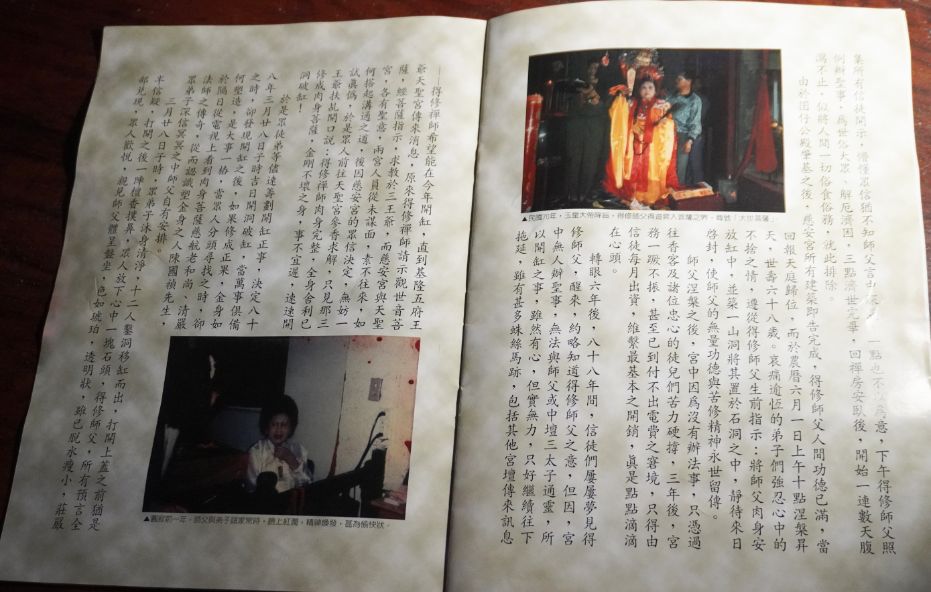 集所有信徒開示，懵懂眾信猶不知師父言中
一點也不以為意，下午得修師父照
例辦聖事，為世俗大眾，解厄消困，三點濟世完畢，回禪房安臥後，開始一連數天腹
瀉不止，似將人間一切俗食俗務，就此排除。
由於囝仔公殿筆基之後，慈安宮所有建築即告完成，得修師父人間功德已滿，當
回報天庭歸位，而於農曆六月一日上午十點涅槃昇
天，世壽六十八歲。哀痛逾恆的弟子們強忍心中的
不捨之情，遵從得修師父生前指示：將師父肉身安
放缸中，並築一山洞將其置於石洞之中，靜待來日
啓封，使師父的無量功德與苦修精神永世留傳。
師父涅槃之後，宮中因為沒有辦法事，只憑過
往香客及諸位忠心的徒兒們苦力硬撐，三年後，宮
務一蹶不振，甚至已到付不出電費之窘境，只得由
信徒每月出資，維繫最基本之開銷，真是點點滴滴
在心頭。
轉眼六年後，八十八年間，信徒們屢屢夢見得
修師父，醒來，約略知道得修師父之意，但因，宮
中無人辦聖事，無法與師父或中壇三太子通靈，所
以開缸之事，雖然有心，但實無力，只好繼續往下
拖延，雖有甚多蛛絲馬跡，包括其他宮壇傳來訊息
▲民國70年，玉皇大帝降旨，得修師父與道眾人首羅之勞，尊號「大慈菩薩」
——得修禪師希望能在今年開缸，直到基隆五府王
爺天聖宮傳來消息，原來得修禪師請示觀世音菩
薩，經菩薩指示，求教於二王爺，而慈安宮與天聖
宮，各有聖意，兩宮人員從未謀面，素不往來，如
何搭起溝通之道，後因慈安宮的眾信決定，無妨一
試真偽，於是眾人前往天聖宮參香求解，只見那三
王爺扶乩開口說：得修禪師肉身完整，全身舍利已
修成肉身菩薩，金剛不壞之身，事不宜遲，速速開
洞破缸！
於是眾徒弟等儘速籌劃開缸正事，決定八十
八年三月廿八日子時吉日開洞破缸，當萬事俱備
之時，卻發現開缸之後，如果修成正果，金身如
何塑造，是大事一樁，當眾人分頭尋找之時，卻
於隔日從電視上看到肉身菩薩慈航老和尚、清嚴
法師之傳奇，從而認識塑全身之人陳國禎先生，
眾弟子深信冥冥之中師父自有安排。
三月廿八日子時，眾弟子沐身清淨，十二人鑿洞移缸而出，打開上蓋之前猶是
半信疑，打開之後一陣檀香撲鼻，眾人放下心中一塊石頭，得修師父，所有預言全
部兌現，眾人歡悦，親見師父體呈盤坐，色如琥珀，透明狀，雖已脫水瘦小，莊嚴
▲圓寂前一年，師父與弟子話家常時，臉上紅潤，精神煥發，甚為愉快狀。